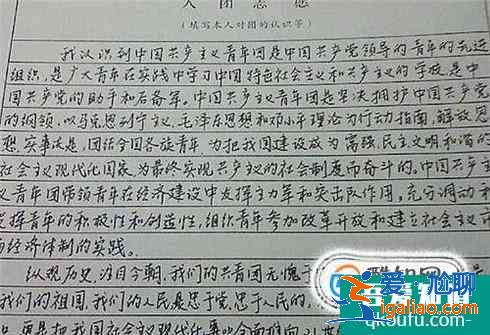 入团志愿
(填写本人对团的认识等)
我认识到中国共产主义青年团是中国共产党领导的青年的先进
组织,是广大青年在实践中学习中国特色社会主义和共产主义的学校,是中
国共产党的助手和后备军。中国共产主义青年团是坚决拥护中国共产党
的纲领,以马克思列宁主义、毛泽东思想和邓小平理论为行动指南,解放思
想,实事求是,团结全国各族青年为把我国建设成为富强民主文明和谐的
社会主义现代化国家,为最终实现共产主义的社会制度而奋斗的。中国共产主
义青年团带领青年在经济建设中发挥主力军和突击队作用,充分调动和
发挥青年的积极性和创造性,组织青年参加改革开放和建立社会主义市
场经济体制的实践。
纵观历史,活目今朝,我们的共青团无愧于
我们的祖国,我们的人民是忠于党,忠于人民的,
更是把我国社会主义现代化事业全面推向
qk5087.com